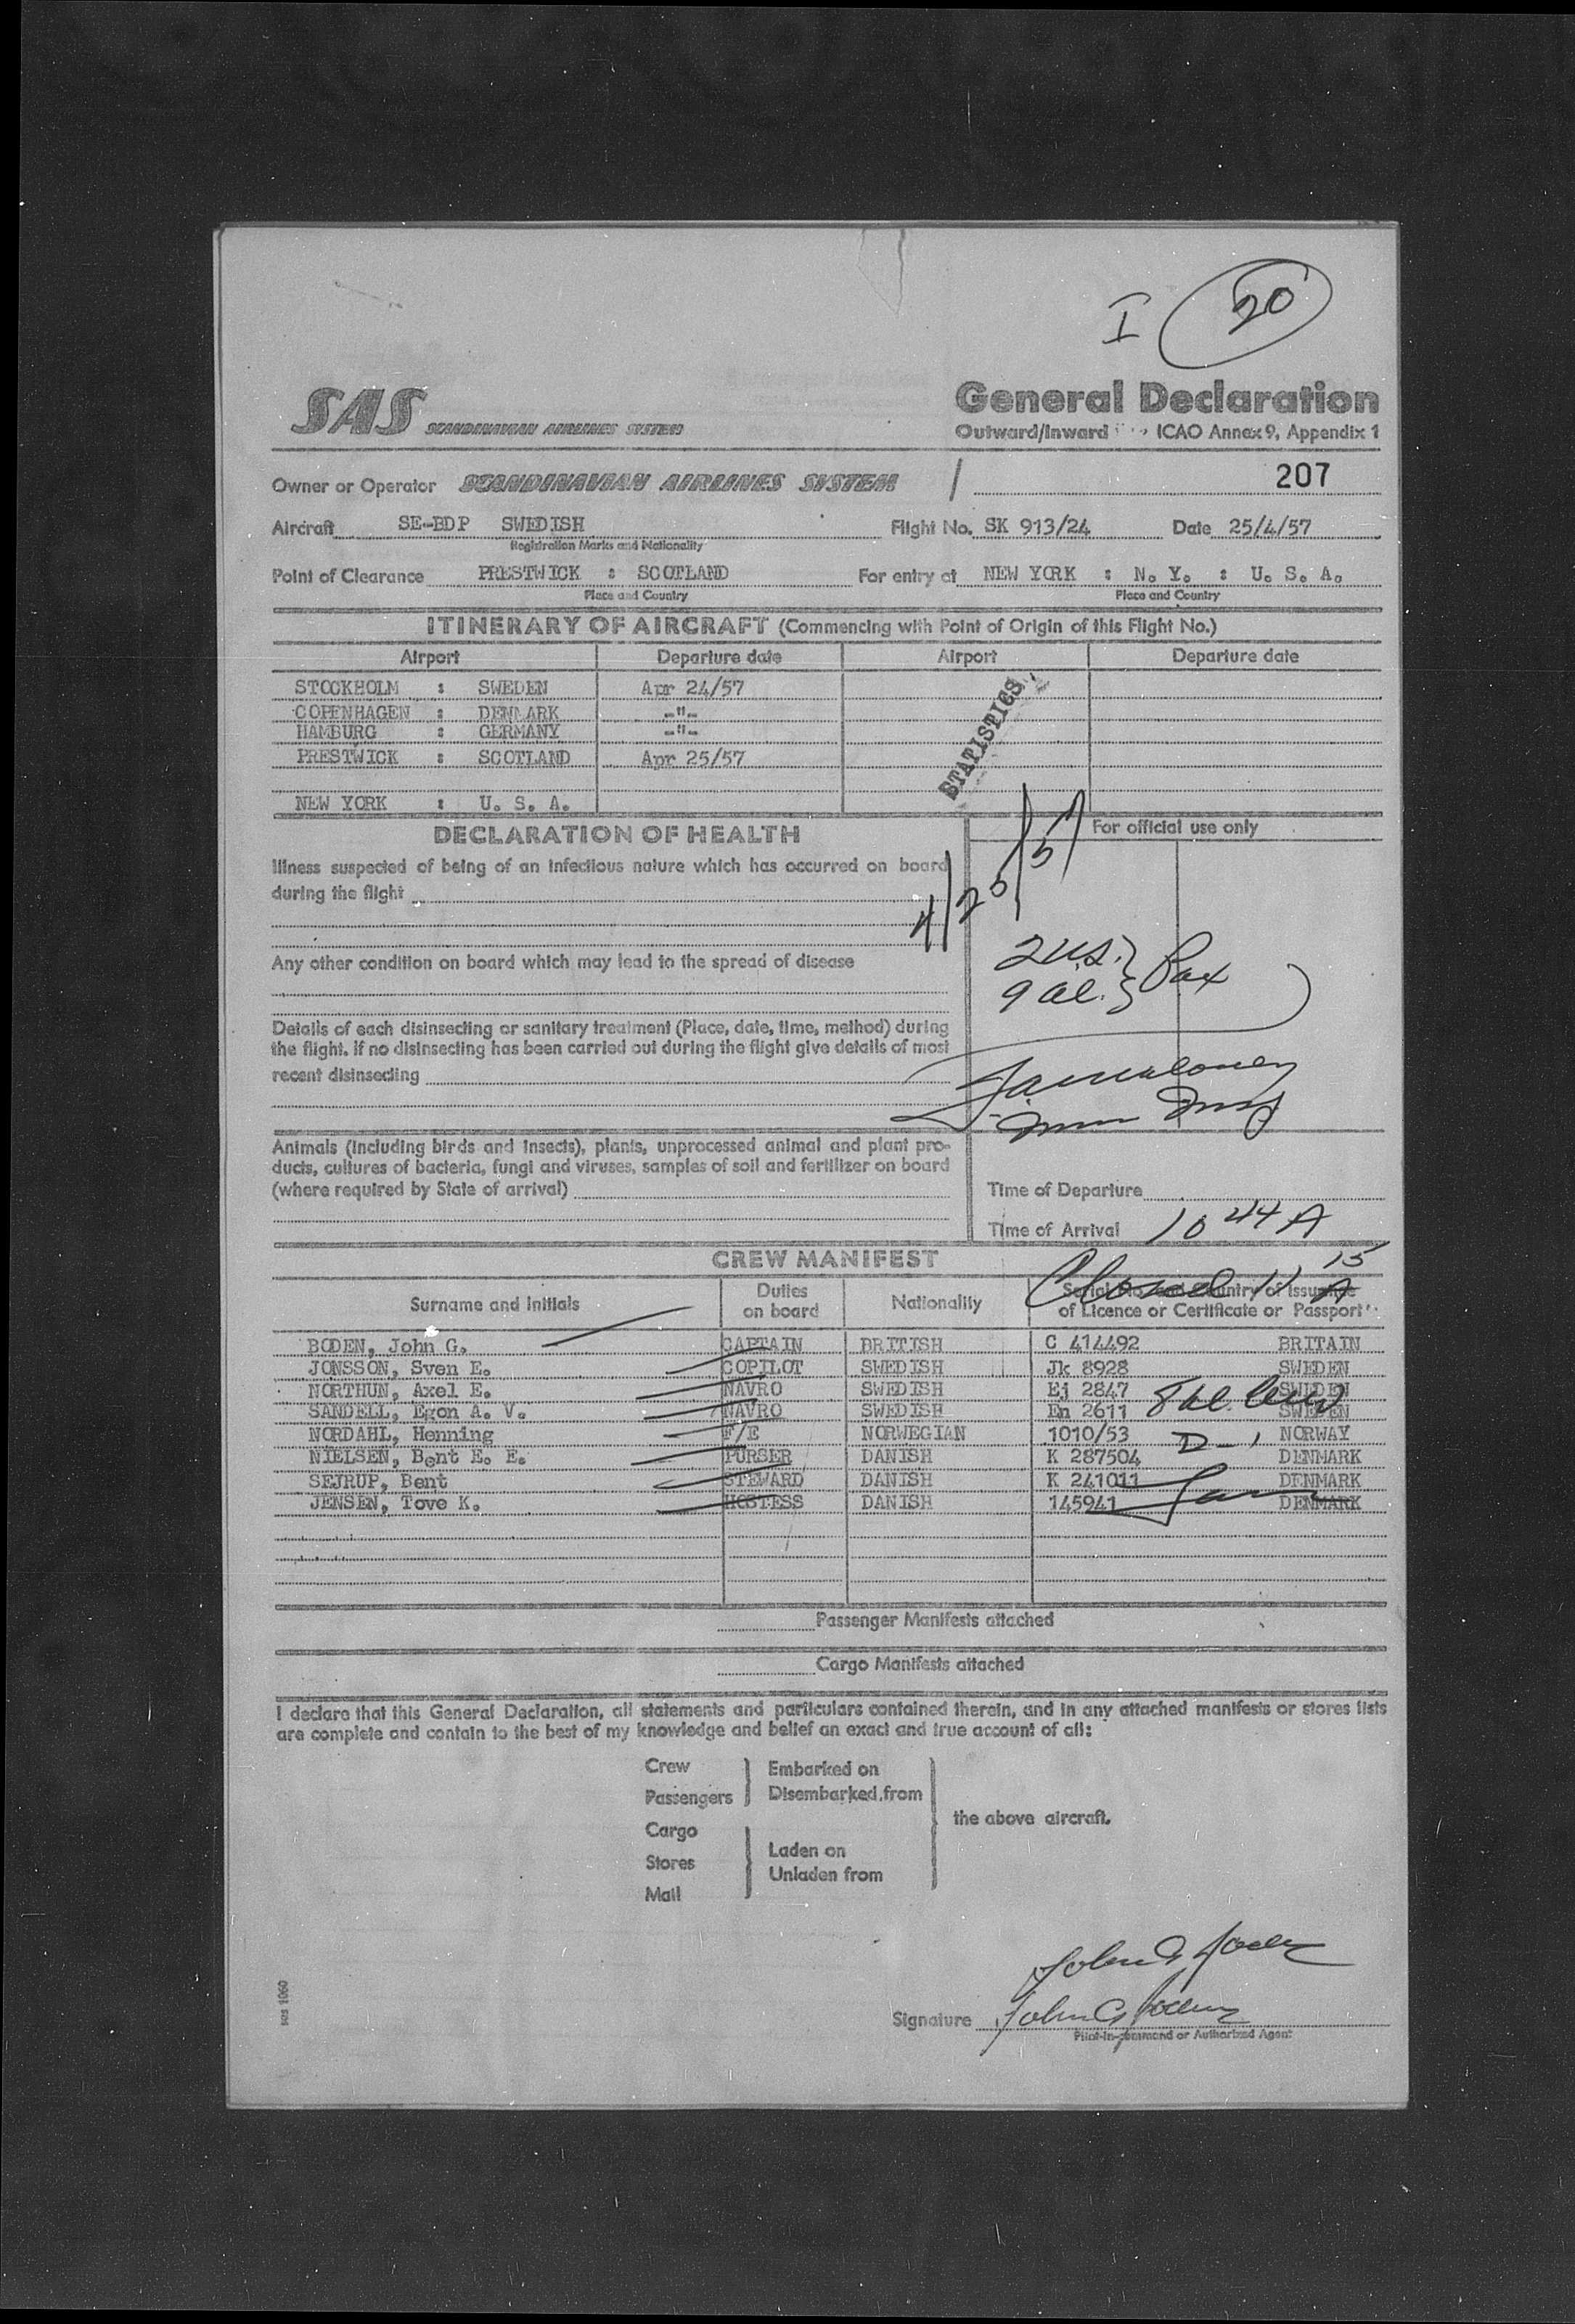 I 20
SAS SCANDINAVIAN AIRLINES SYSTEM
General Declaration
Outward/Inward ICAO Annex 9, Appendix 1
Owner or Operator SCANDINAVIAN AIRLINES SYSTEM / 207
Aircraft SE-BDP SWEDISH Flight No. SK 913/24 Date 25/4/57
Registration Marks and Nationality
Point of Clearance PRESTWICK : SCOTLAND For entry at NEW YORK : N. Y. : U. S. A.
Place and Country Place and Country
ITINERARY OF AIRCRAFT (Commencing with Point of Origin of this Flight No.)
Airport Departure date Airport Departure date
STOCKHOLM : SWEDEN Apr 24/57
COPENHAGEN : DENMARK -"-
HAMBURG : GERMANY -"-
PRESTWICK : SCOTLAND Apr 25/57
NEW YORK : U. S. A.
STATISTICS
4/25/57
DECLARATION OF HEALTH
For official use only
Illness suspected of being of an infectious nature which has occurred on board
during the flight
Any other condition on board which may lead to the spread of disease
2 US.
9 al. } Pax
Details of each disinsecting or sanitary treatment (Place, date, time, method) during
the flight. If no disinsecting has been carried out during the flight give details of most
recent disinsecting
Animals (including birds and insects), plants, unprocessed animal and plant pro-
ducts, cultures of bacteria, fungi and viruses, samples of soil and fertilizer on board
(where required by State of arrival)
Time of Departure
Time of Arrival 10 44 A
CREW MANIFEST
Closed 11 15 A
Surname and Initials Duties on board Nationality Serial No. and Country of issuance
of Licence or Certificate or Passport
BODEN, John G. CAPTAIN BRITISH C 414492 BRITAIN
JONSSON, Sven E. COPILOT SWEDISH Jk 8928 SWEDEN
NORTHUN, Axel E. NAVRO SWEDISH Ej 2847 SWEDEN
SANDELL, Egon A. V. NAVRO SWEDISH En 2611 SWEDEN
8 al. crew
NORDAHL, Henning F/E NORWEGIAN 1010/53 NORWAY
D-1
NIELSEN, Bent E. E. PURSER DANISH K 287504 DENMARK
SEJRUP, Bent STEWARD DANISH K 241011 DENMARK
JENSEN, Tove K. HOSTESS DANISH 145941 DENMARK
Passenger Manifests attached
Cargo Manifests attached
I declare that this General Declaration, all statements and particulars contained therein, and in any attached manifests or stores lists
are complete and contain to the best of my knowledge and belief an exact and true account of all:
Crew
Passengers
Embarked on
Disembarked from
Cargo
Stores
Mail
Laden on
Unladen from
the above aircraft.
John G Boden
Signature John G Boden
Pilot-in-command or Authorized Agent
sas 1060